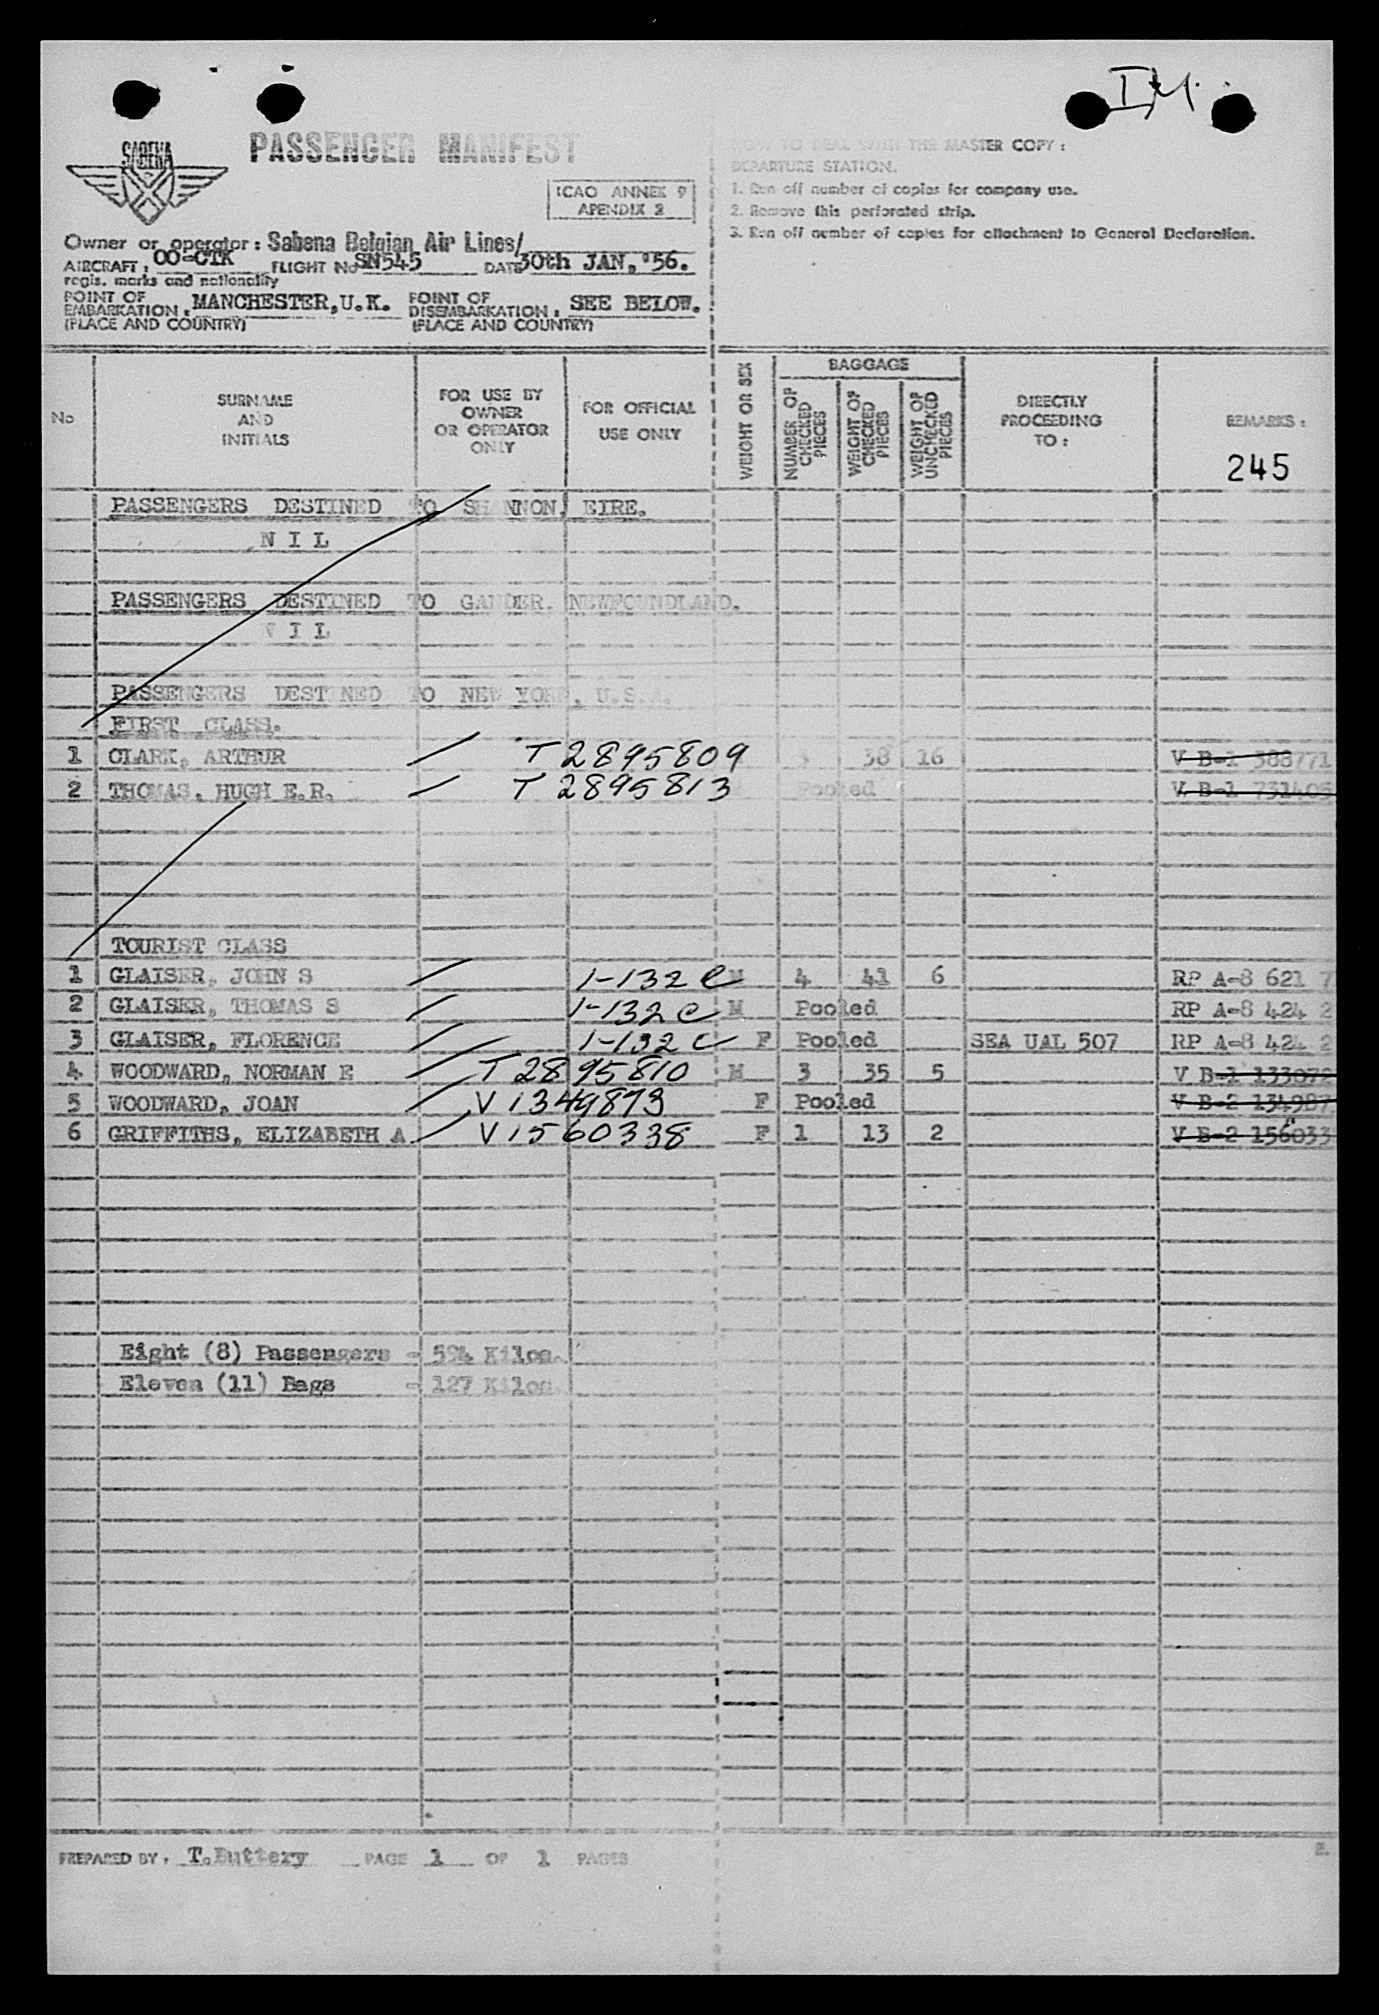 I.M.
SABENA
PASSENGER MANIFEST
ICAO ANNEX 9
APENDIX 2
HOW TO DEAL WITH THE MASTER COPY :
DEPARTURE STATION.
1. Run off number of copies for company use.
2. Remove this perforated strip.
3. Run off number of copies for attachment to General Declaration.
Owner or operator : Sabena Belgian Air Lines/
AIRCRAFT : OO-CTK FLIGHT No SN545 DATE 30th JAN, '56.
regis. marks and nationality
POINT OF EMBARKATION : MANCHESTER, U.K. POINT OF DISEMBARKATION : SEE BELOW.
(PLACE AND COUNTRY) (PLACE AND COUNTRY)
No SURNAME AND INITIALS FOR USE BY OWNER OR OPERATOR ONLY FOR OFFICIAL USE ONLY WEIGHT OR SEX BAGGAGE NUMBER OF CHECKED PIECES WEIGHT OF CHECKED PIECES WEIGHT OF UNCHECKED PIECES DIRECTLY PROCEEDING TO : REMARKS :
245
PASSENGERS DESTINED TO SHANNON, EIRE.
N I L
PASSENGERS DESTINED TO GANDER. NEWFOUNDLAND.
N I L
PASSENGERS DESTINED TO NEW YORK, U.S.A.
FIRST CLASS.
1 CLARK, ARTHUR T 2895809 38 16 V B-1 388771
2 THOMAS, HUGH E.R. T 2895813 Pooled V B-1 731405
TOURIST CLASS
1 GLAISER, JOHN S 1-132 C M 4 41 6 RP A-8 621 7
2 GLAISER, THOMAS S 1-132 C M Pooled RP A-8 424 2
3 GLAISER, FLORENCE 1-132 C F Pooled SEA UAL 507 RP A-8 424 2
4 WOODWARD, NORMAN E T 2895810 M 3 35 5 V B-1 133072
5 WOODWARD, JOAN V 1349873 F Pooled V B-2 134987
6 GRIFFITHS, ELIZABETH A V 1560338 F 1 13 2 V B-2 156033
Eight (8) Passengers - 594 Kilos.
Eleven (11) Bags - 127 Kilos.
PREPARED BY : T.Buttery PAGE 1 OF 1 PAGES